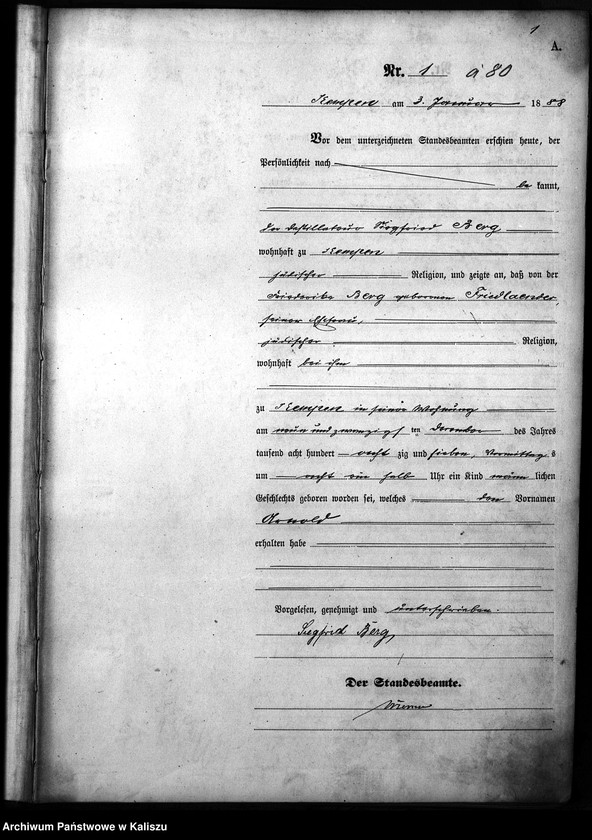 1
A.
Nr. 1 à 80
Kempen am 3. Januar 1888
Vor dem unterzeichneten Standesbeamten erschien heute, der
Persönlichkeit nach
be kannt,
der Destillateur Siegfried Berg
wohnhaft zu Kempen
jüdischer Religion, und zeigte an, daß von der
Friederike Berg geborenen Friedlaender,
seiner Ehefrau,
jüdischer Religion,
wohnhaft bei ihm
zu Kempen in seiner Wohnung
am neun und zwanzigsten Dezember des Jahres
tausend acht hundert acht zig und sieben, Vormittag s
um acht ein halb Uhr ein Kind männ lichen
Geschlechts geboren worden sei, welches den Vornamen
Arnold
erhalten habe
Vorgelesen, genehmigt und unterschrieben.
Siegfried Berg,
Der Standesbeamte.
Archiwum Państwowe w Kaliszu